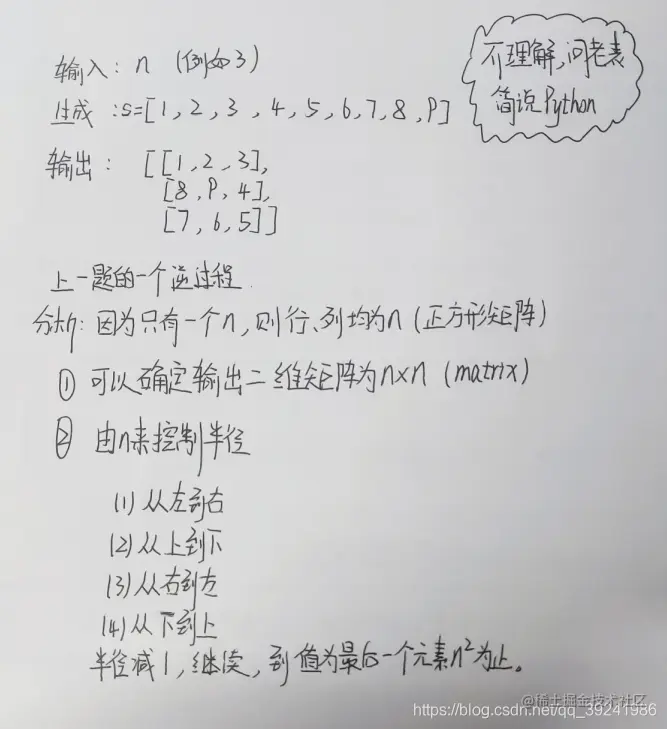 输入: n (例如3)
生成: s=[1, 2, 3, 4, 5, 6, 7, 8, 9]
输出: [[1, 2, 3],
[8, 9, 4],
[7, 6, 5]]
不理解,问老表
简说Python
上一题的一个逆过程.
分析: 因为只有一个n, 则行、列均为n (正方形矩阵)
① 可以确定输出二维矩阵为n×n (matrix)
② 由n来控制半径
(1) 从左到右
(2) 从上到下
(3) 从右到左
(4) 从下到上
半径减1, 继续, 到值为最后一个元素n²为止。
@稀土掘金技术社区
https://blog.csdn.net/qq_39241986